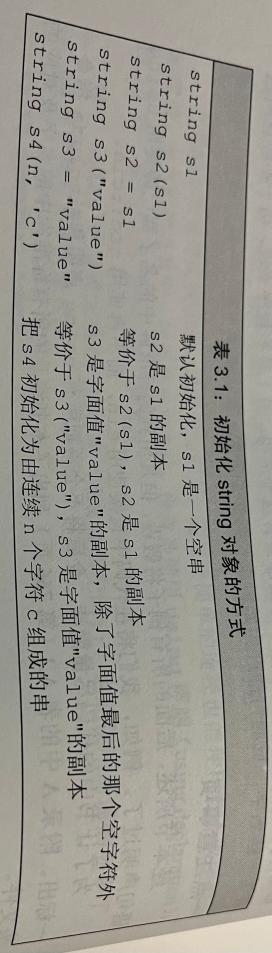 表 3.1：初始化 string 对象的方式
string s1 默认初始化，s1 是一个空串
string s2(s1) s2 是 s1 的副本
string s2 = s1 等价于 s2(s1)，s2 是 s1 的副本
string s3("value") s3 是字面值"value"的副本，除了字面值最后的那个空字符外
string s3 = "value" 等价于 s3("value")，s3 是字面值"value"的副本
string s4(n, 'c') 把 s4 初始化为由连续 n 个字符 c 组成的串